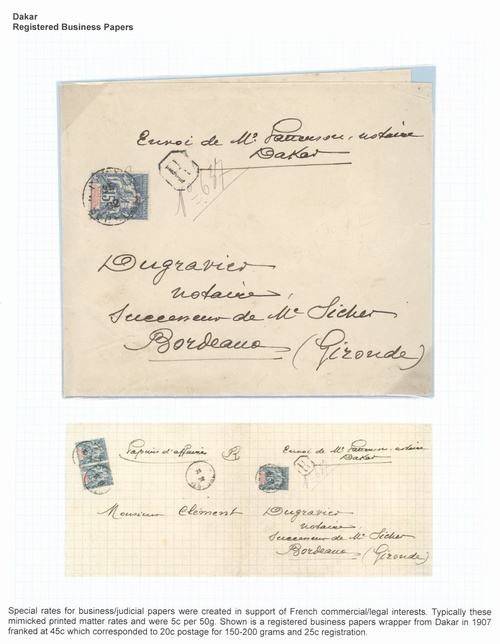 Dakar
Registered Business Papers
Envoi de Me Patterson, notaire
Dakar
R
15
Dugravier
notaire,
Successeur de Me Sicher
Bordeaux (Gironde)
Papiers d'affaires R
Envoi de Me Patterson, notaire
Dakar
R
Monsieur Clément
Dugravier
notaire,
Successeur de Me Sicher
Bordeaux (Gironde)
Special rates for business/judicial papers were created in support of French commercial/legal interests. Typically these
mimicked printed matter rates and were 5c per 50g. Shown is a registered business papers wrapper from Dakar in 1907
franked at 45c which corresponded to 20c postage for 150-200 grams and 25c registration.